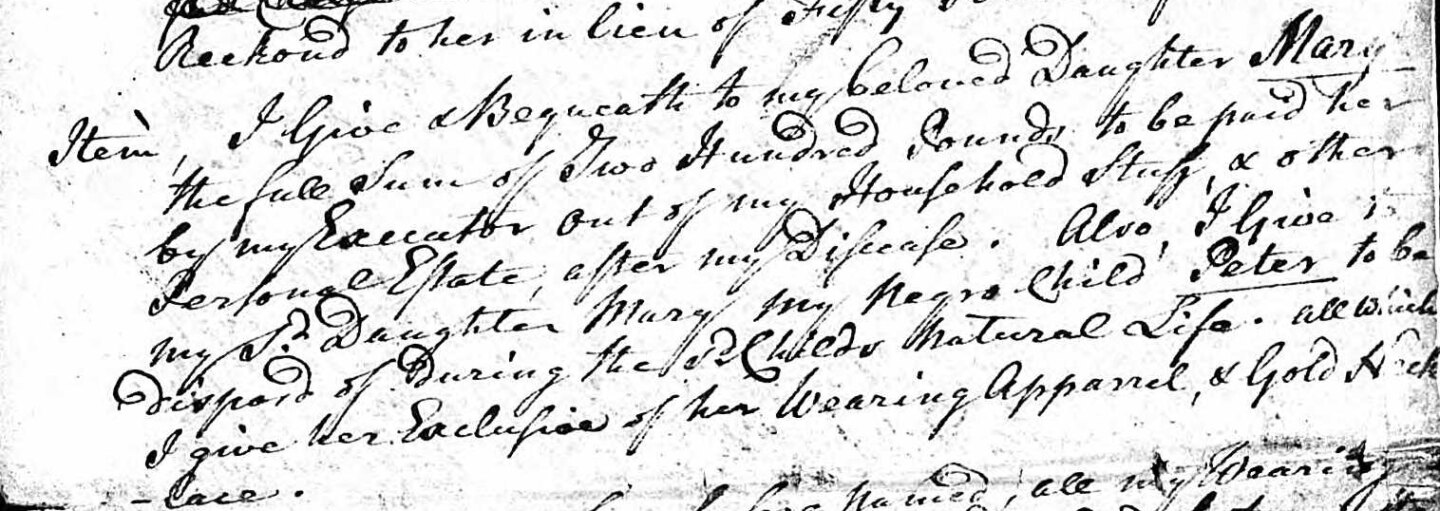 Reckond to her in lieu of Fifty
Item, I Give & Bequeath to my beloved Daughter Mary
the full Sum of Two Hundred Pounds to be paid her
by my Executor out of my Household Stuff, & other
Personal Estate, after my Disease. Also, I Give to
my Sd. Daughter Mary my Negro Child Peter to be
disposd of During the Sd Childs Natural Life. all which
I give her Exclusive of her Wearing Apparrel, & Gold Neck
-lace.
named, all my Wearing